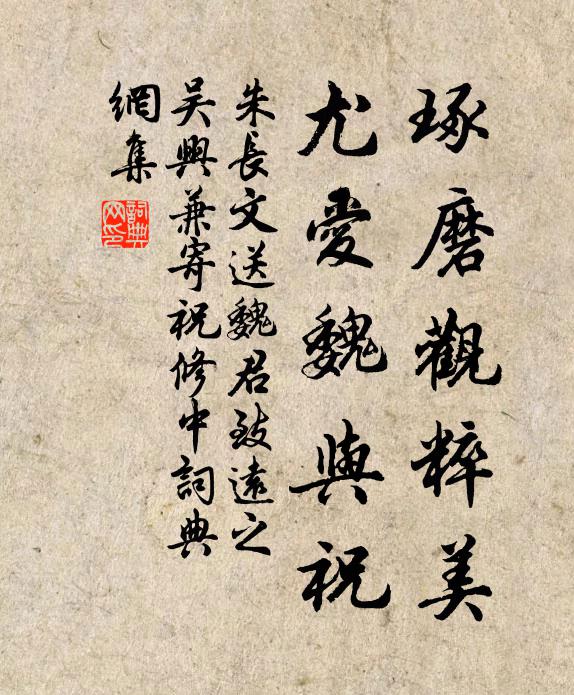 琢磨觀粹美
尤愛魏與祝
朱長文送魏君致遠之
吴興兼寄祝修中詞典
網集
詞典
网印